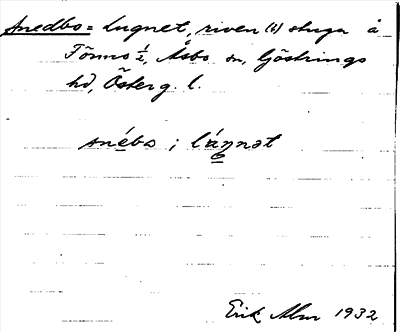 Snedbo = Lugnet, riven (t) stuga å
Tõnno 1/2, Åsbo sn, Göstrings
hd, Österg. l.
snébo ; lúŋnət
Erik Alm 1932